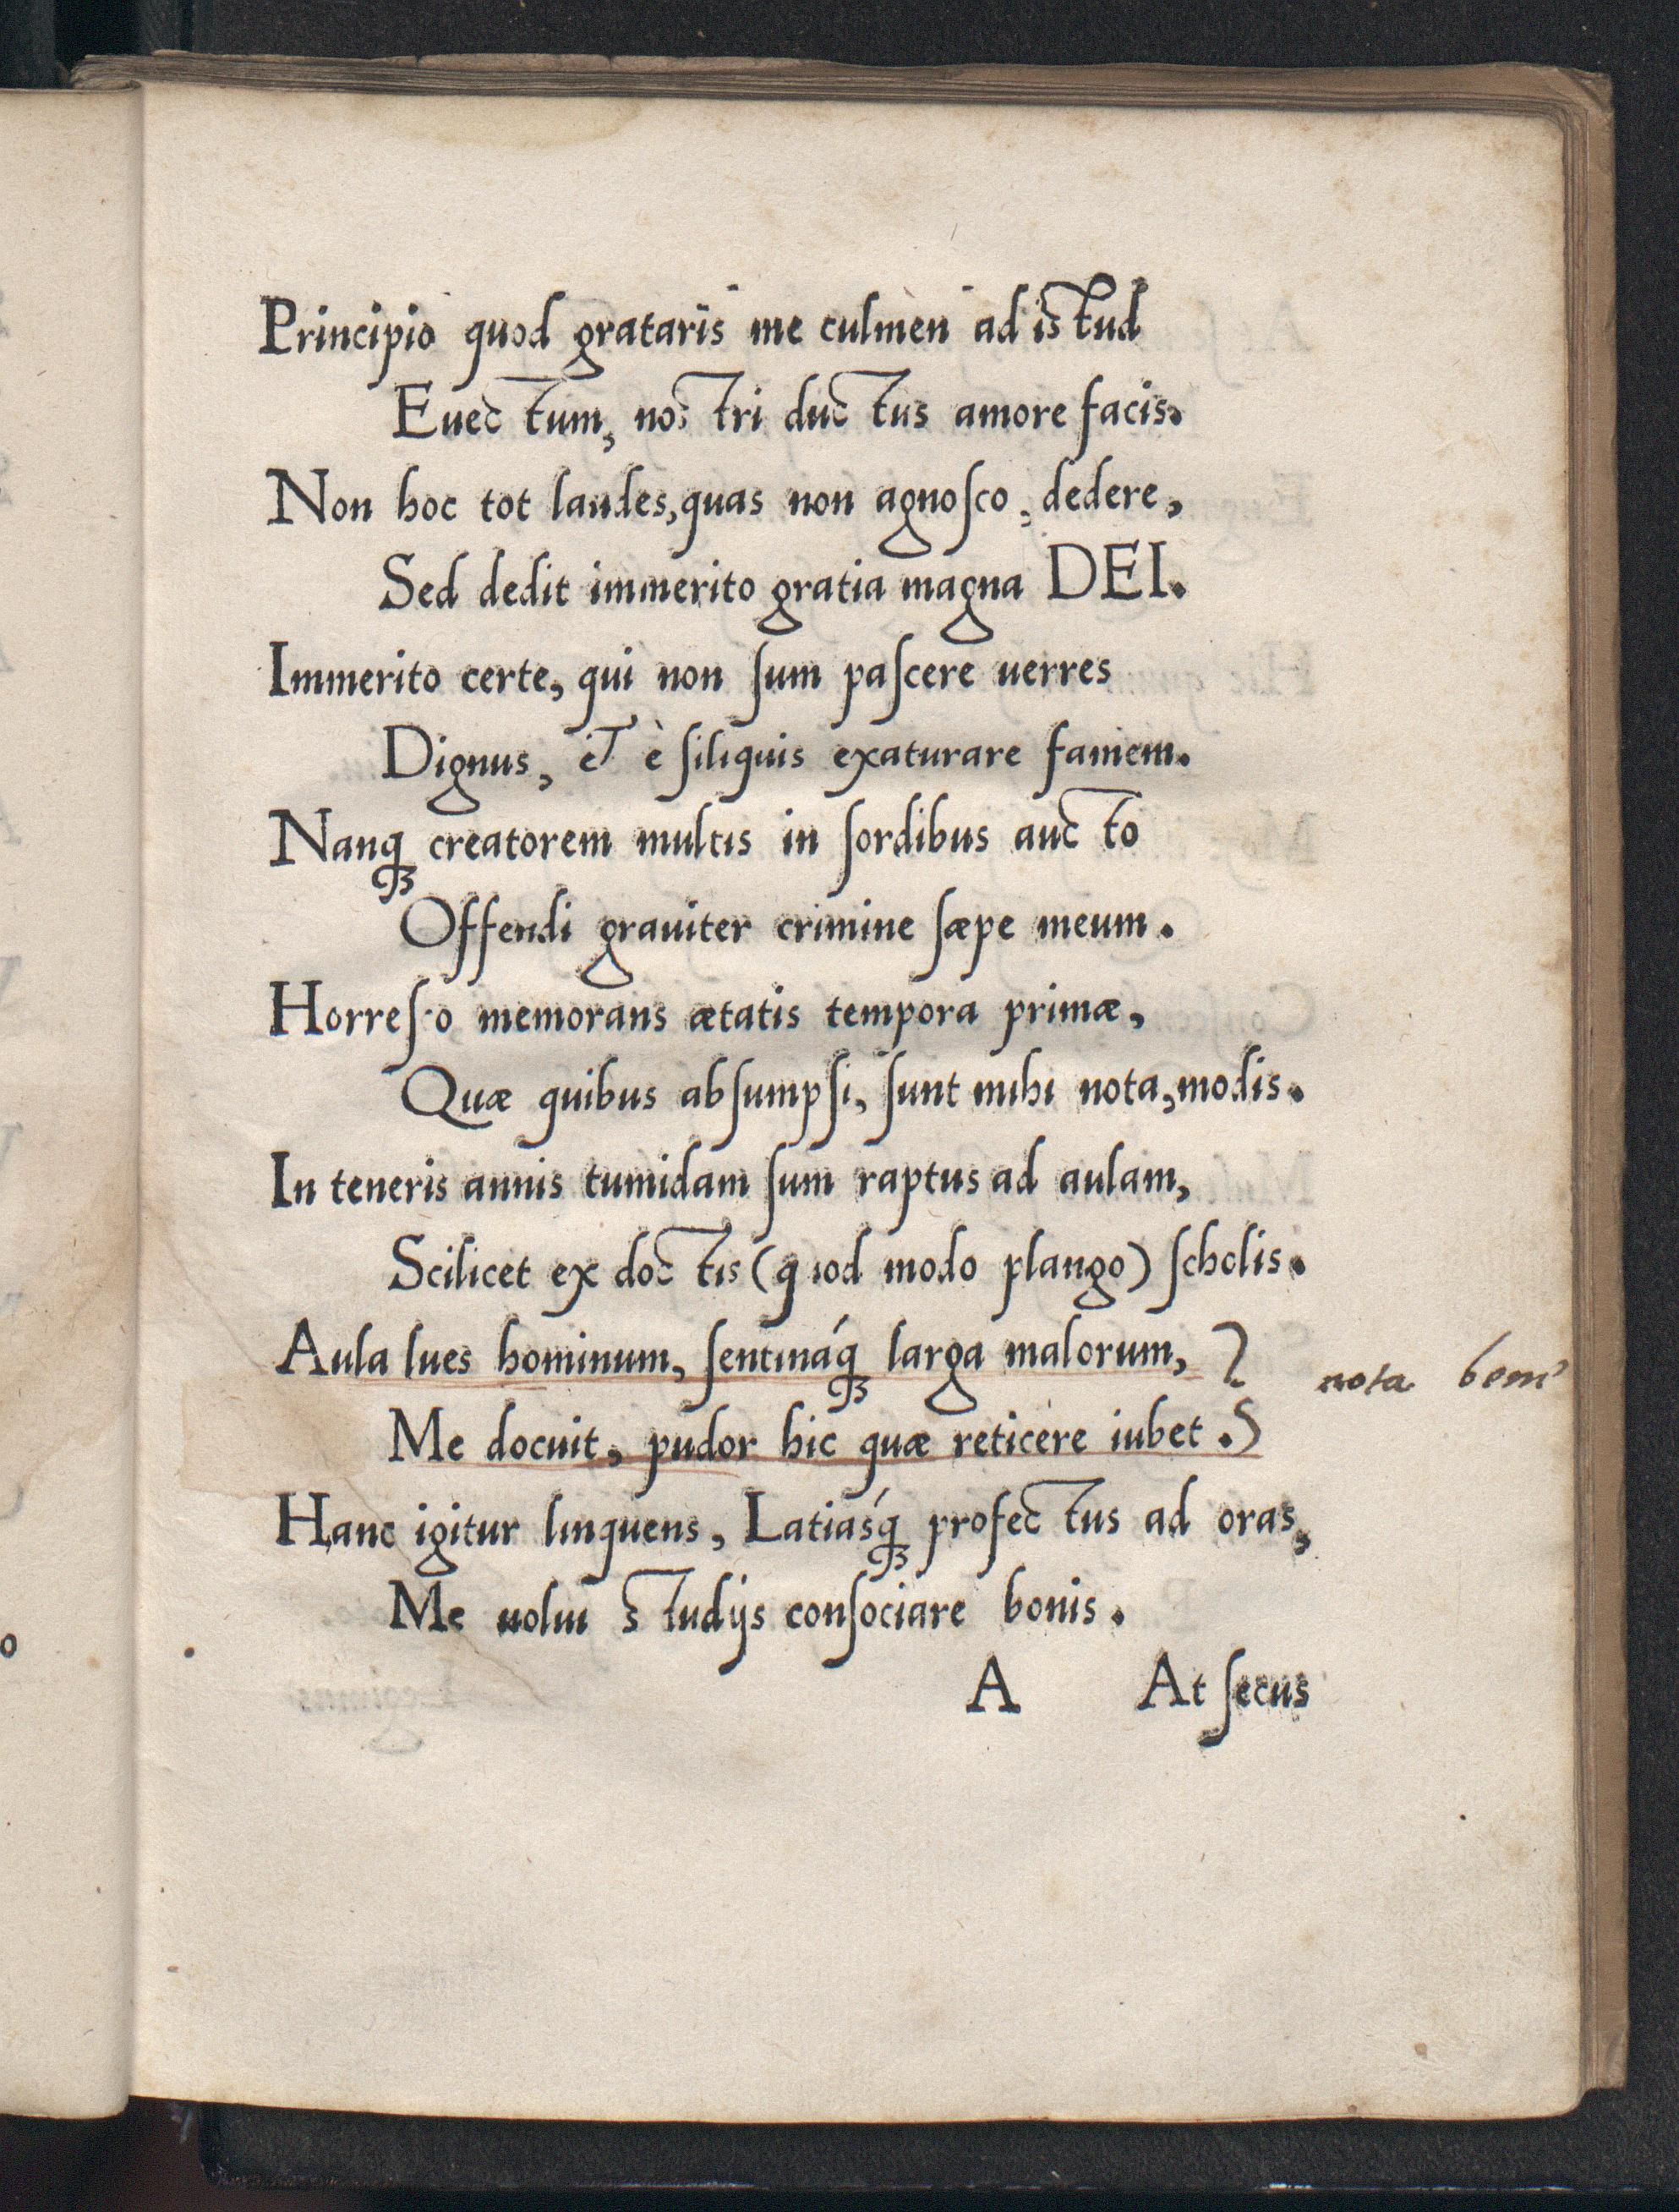 Principio quod grataris me culmen ad istud
Euectum, nostri ductus amore facis.
Non hoc tot laudes, quas non agnoſco, dedere,
Sed dedit immerito gratia magna DEI.
Immerito certe, qui non ſum paſcere uerres
Dignus, et è ſiliquis exaturare famem.
Nanqꝫ creatorem multis in ſordibus aucto
Offendi grauiter crimine ſæpe meum.
Horreſco memorans ætatis tempora primæ,
Quæ quibus abſumpſi, ſunt mihi nota, modis.
In teneris annis tumidam ſum raptus ad aulam,
Scilicet ex doctis (quod modo plango) ſcholis.
Aula lues hominum, ſentináqꝫ larga malorum,
nota bene
Me docuit, pudor hic quæ reticere iubet.
Hanc igitur linquens, Latiásqꝫ profectus ad oras,
Me uolui studijs conſociare bonis.
A At ſecus